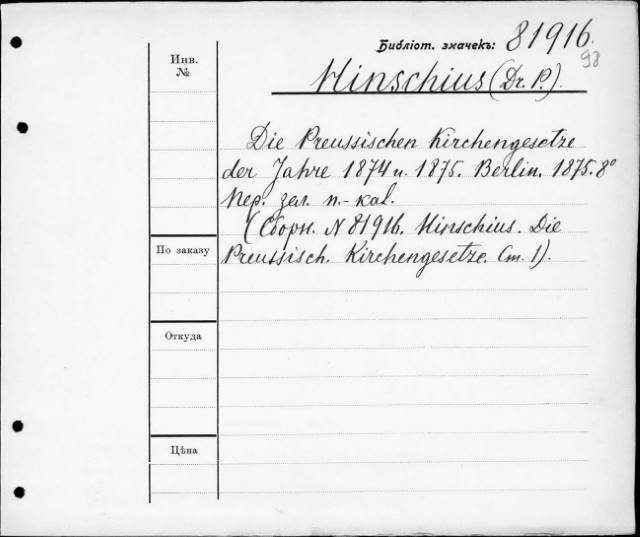 Библіот. значекъ: 81916.
98
Инв.
№
Hinschius (Dr. P.).
Die Preussischen Kirchengesetze
der Jahre 1874 u. 1875. Berlin. 1875. 8°
Пер. зел. п.-кал.
(Сборн. № 81916. Hinschius. Die
Preussisch. Kirchengesetze. (т. 1).
По заказу
Откуда
Цѣна